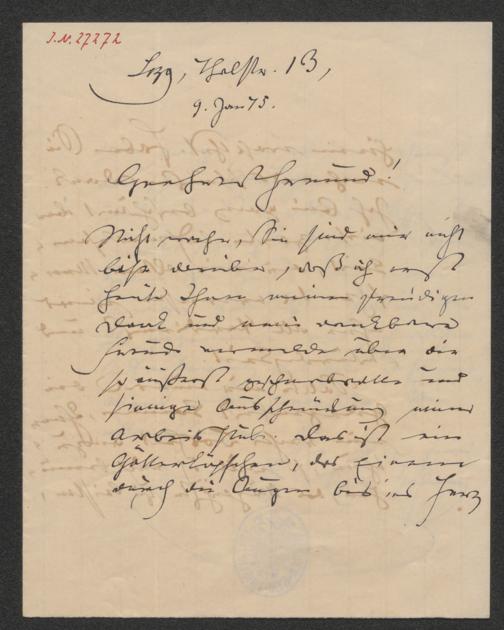 J.N. 27272
Lpzg, Thalstr. 13,
9. Jan 75.
Geehrter Freund!
Nicht wahr, Sie sind mir nicht
böse darüber, daß ich erst
heute Ihnen meinen freudigen
Dank und meine dankbare
Freude vermelde über die
so äußerst geschmackvolle und
sinnige Ausschmückung meiner
Arbeitsstube. Das ist ein
Götterköpfchen, das Einem
durch die Augen bis ins Herz